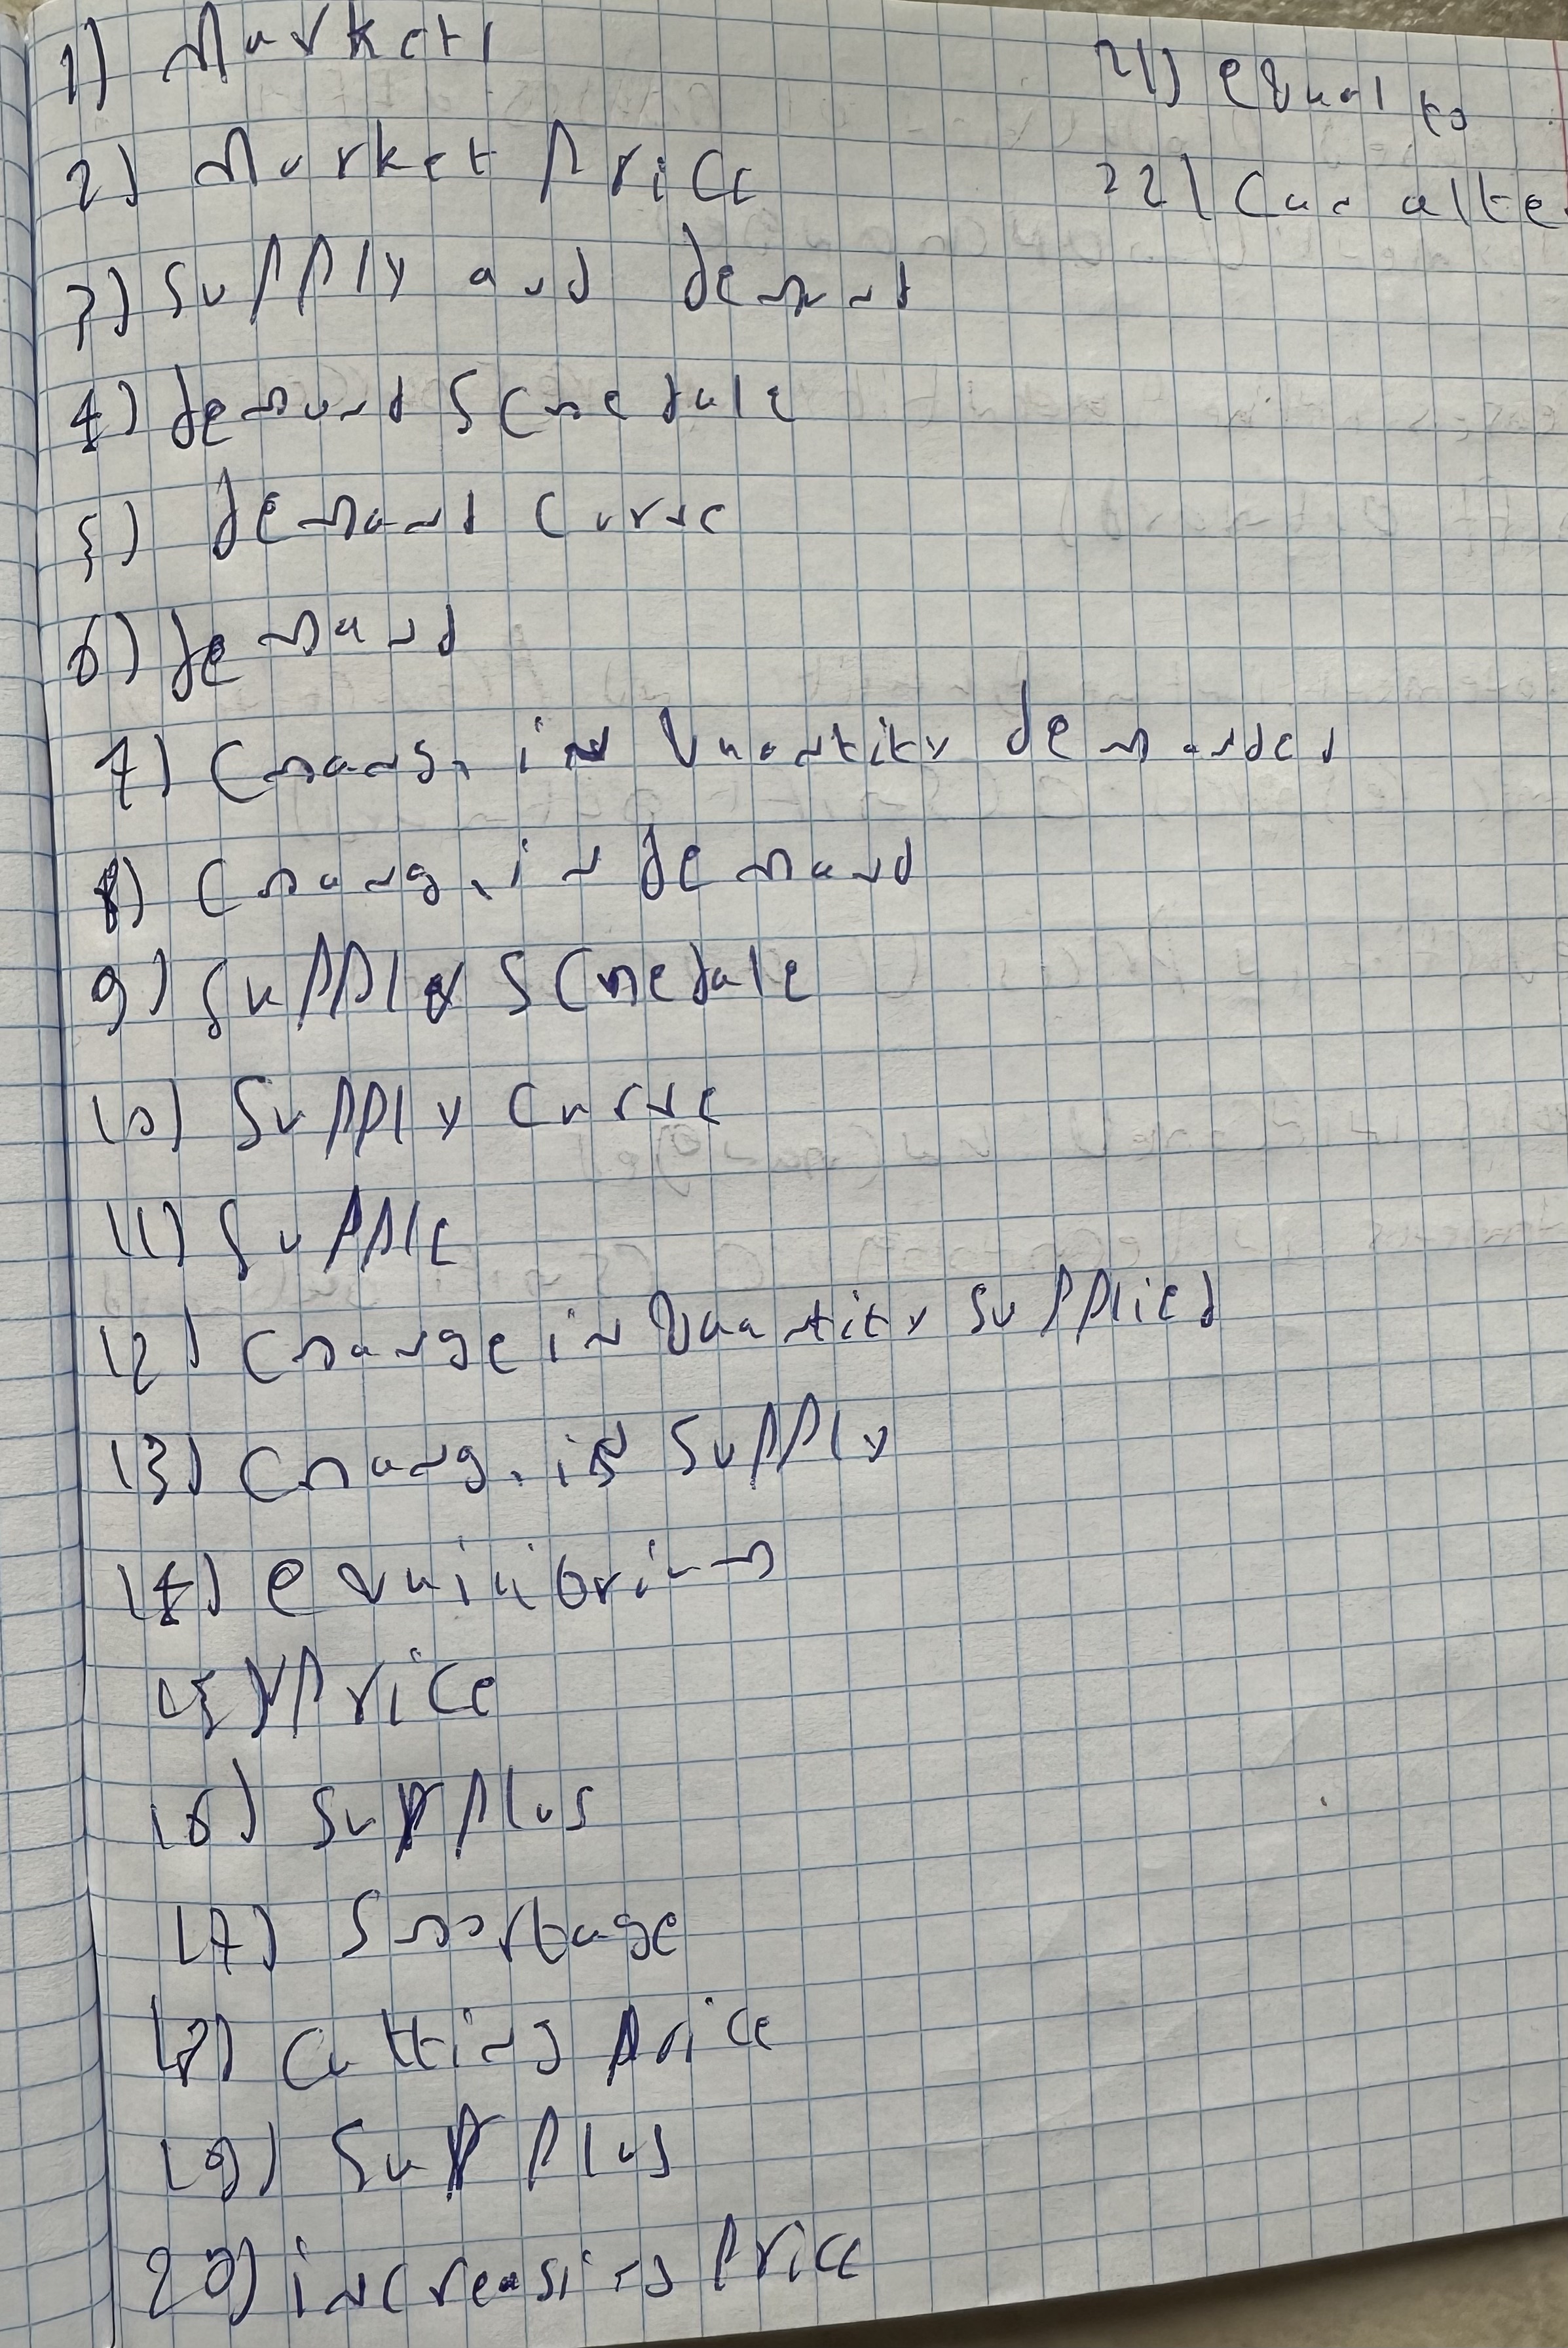 1) Market
2) Market Price
3) Supply and demand
4) demand Schedule
5) demand Curve
6) demand
7) Chang. in Quantity demanded
8) Chang. in demand
9) Supply Schedule
10) Supply Curve
11) Supple
12) Change in Quantity Supplied
13) Chang. in Supply
14) equilibrium
15) Price
16) Surplus
17) Shortage
18) Cutting Price
19) Surplus
20) increasing Price
21) equal to
22) Can alte